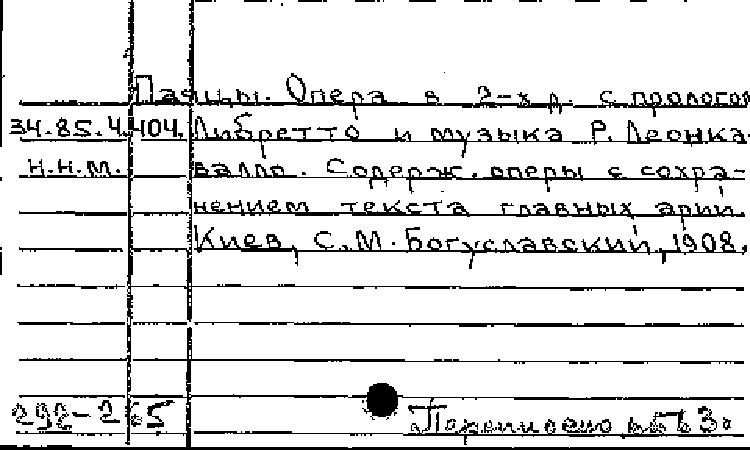 Паяцы. Опера в 2-х д. с прологом
34.85.4.404. Либретто и музыка Р. Леонка-
Н.Н.М. валло. Содерж. оперы с сохра-
нением текста главных арий.
Киев, С.М. Богуславский, 1908.
292-265